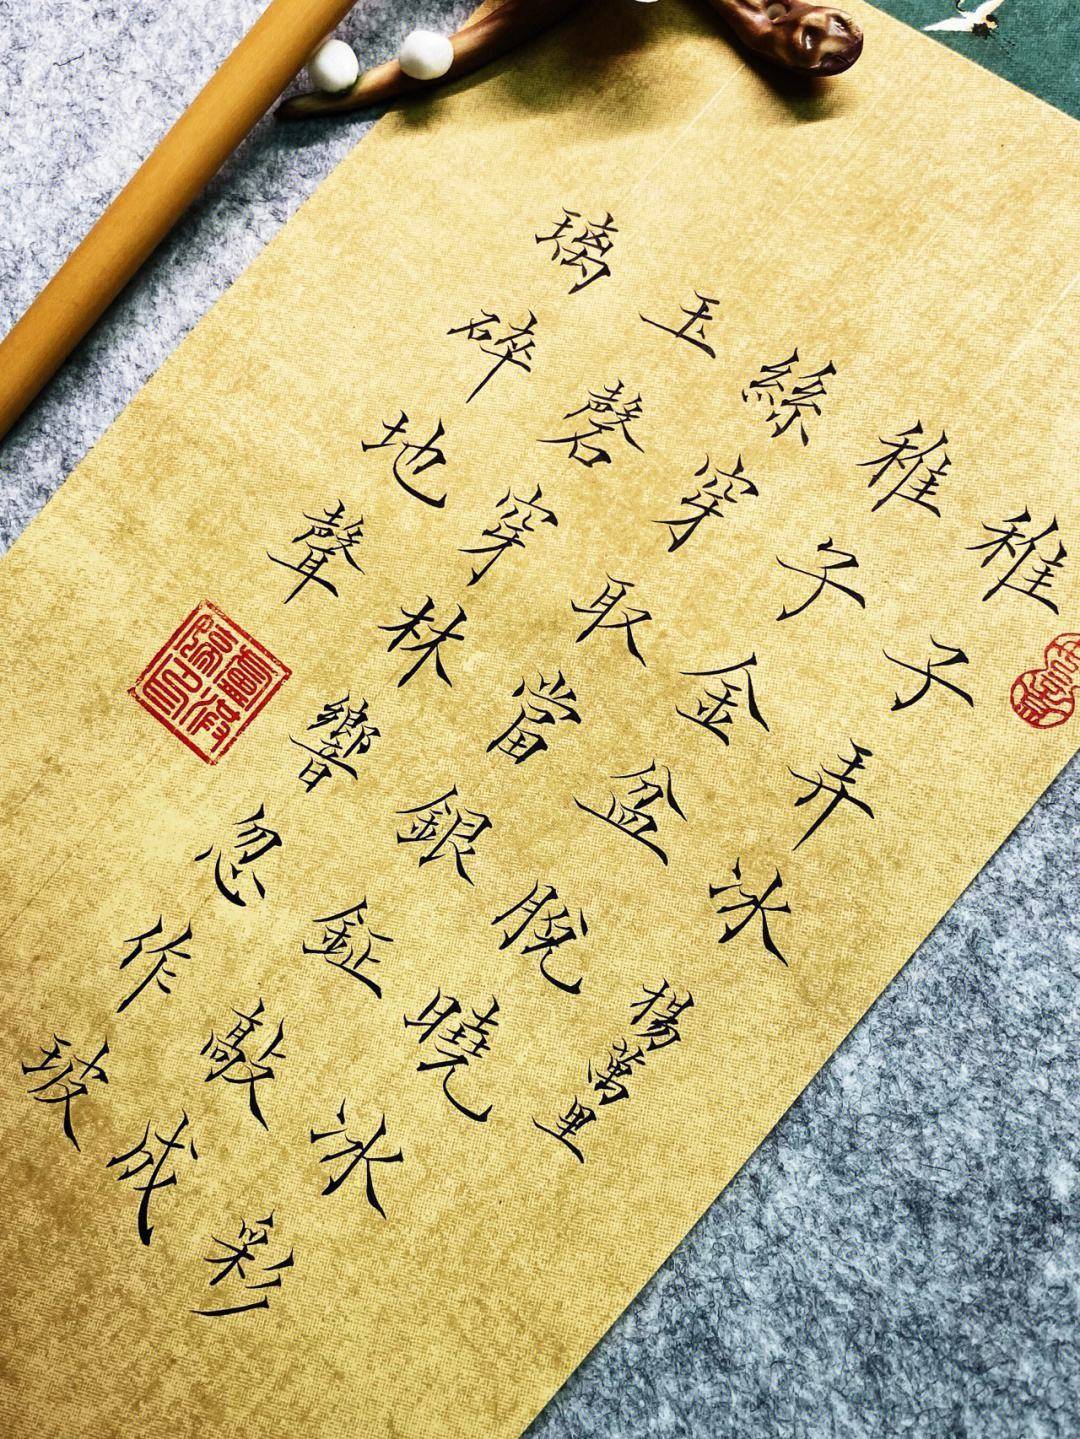 稚子弄冰 楊萬里
稚子金盆脫曉冰彩
絲穿取當銀鉦敲成
玉磬穿林響忽作玻
璃碎地聲